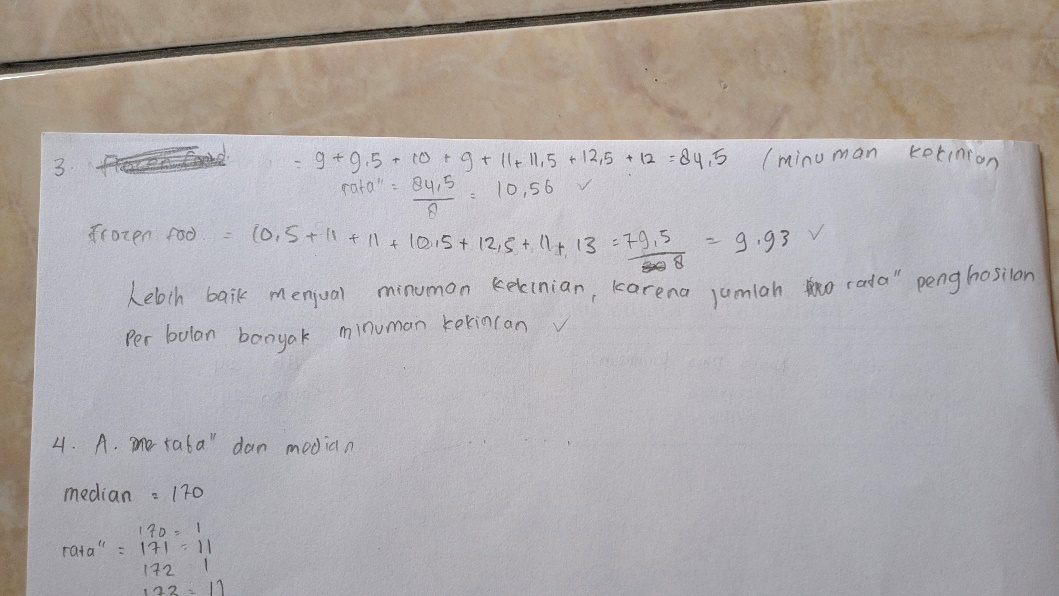 3. = 9 + 9,5 + 10 + 9 + 11 + 11,5 + 12,5 + 12 = 84,5 (minuman kekinian
rata" = 84,5 / 8 = 10,56 ✓
Frozen foo = 10,5 + 11 + 11 + 10,5 + 12,5 + 11 + 13 = 79,5 / 8 = 9.93 ✓
Lebih baik menjual minuman kekinian, karena jumlah rata" penghasilan
Per bulan banyak minuman kekinian ✓
4. A. rata" dan median
median = 170
170 = 1
rata" = 171 = 11
172 1
173 = 11